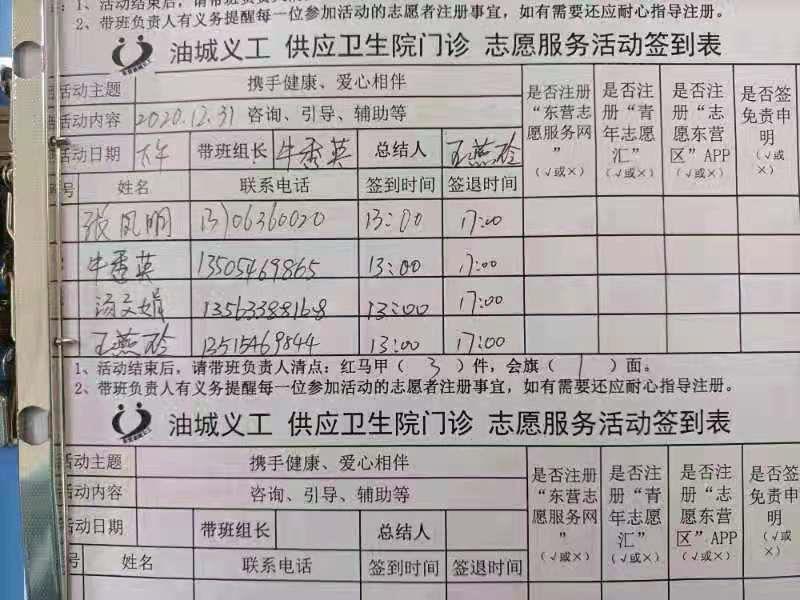 1、活动结束后，请带班负责人
2、带班负责人有义务提醒每一位参加活动的志愿者注册事宜，如有需要还应耐心指导注册。
油城义工 供应卫生院门诊 志愿服务活动签到表
活动主题 携手健康、爱心相伴 是否注册“东营志愿服务网”（√或×） 是否注册“青年志愿汇”（√或×） 是否注册“志愿东营区”APP（√或×） 是否签免责申明（√或×）
活动内容 2020.12.31 咨询、引导、辅助等
活动日期 下午 带班组长 牛秀英 总结人 王燕玲
号 姓名 联系电话 签到时间 签退时间
张凤明 13706360020 13:00 17:00
牛秀英 13505469865 13:00 17:00
汤文娟 13563388168 13:00 17:00
王燕玲 13515469844 13:00 17:00
1、活动结束后，请带班负责人清点：红马甲（ 3 ）件，会旗（ 1 ）面。
2、带班负责人有义务提醒每一位参加活动的志愿者注册事宜，如有需要还应耐心指导注册。
油城义工 供应卫生院门诊 志愿服务活动签到表
活动主题 携手健康、爱心相伴 是否注册“东营志愿服务网”（√或×） 是否注册“青年志愿汇”（√或×） 是否注册“志愿东营区”APP（√或×） 是否签免责申明（√或×）
活动内容 咨询、引导、辅助等
活动日期 带班组长 总结人
号 姓名 联系电话 签到时间 签退时间